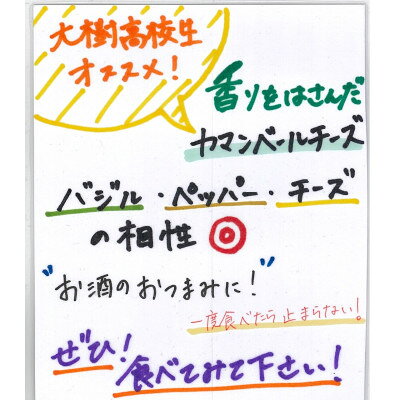 大樹高校生
オススメ!
香りをはさんだ
カマンベールチーズ
バジル・ペッパー・チーズ
の相性◎
"お酒のおつまみに!"
一度食べたら止まらない!
ぜひ!
食べてみて下さい!